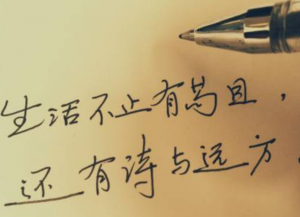 生活不止有苟且,
还有诗与远方。